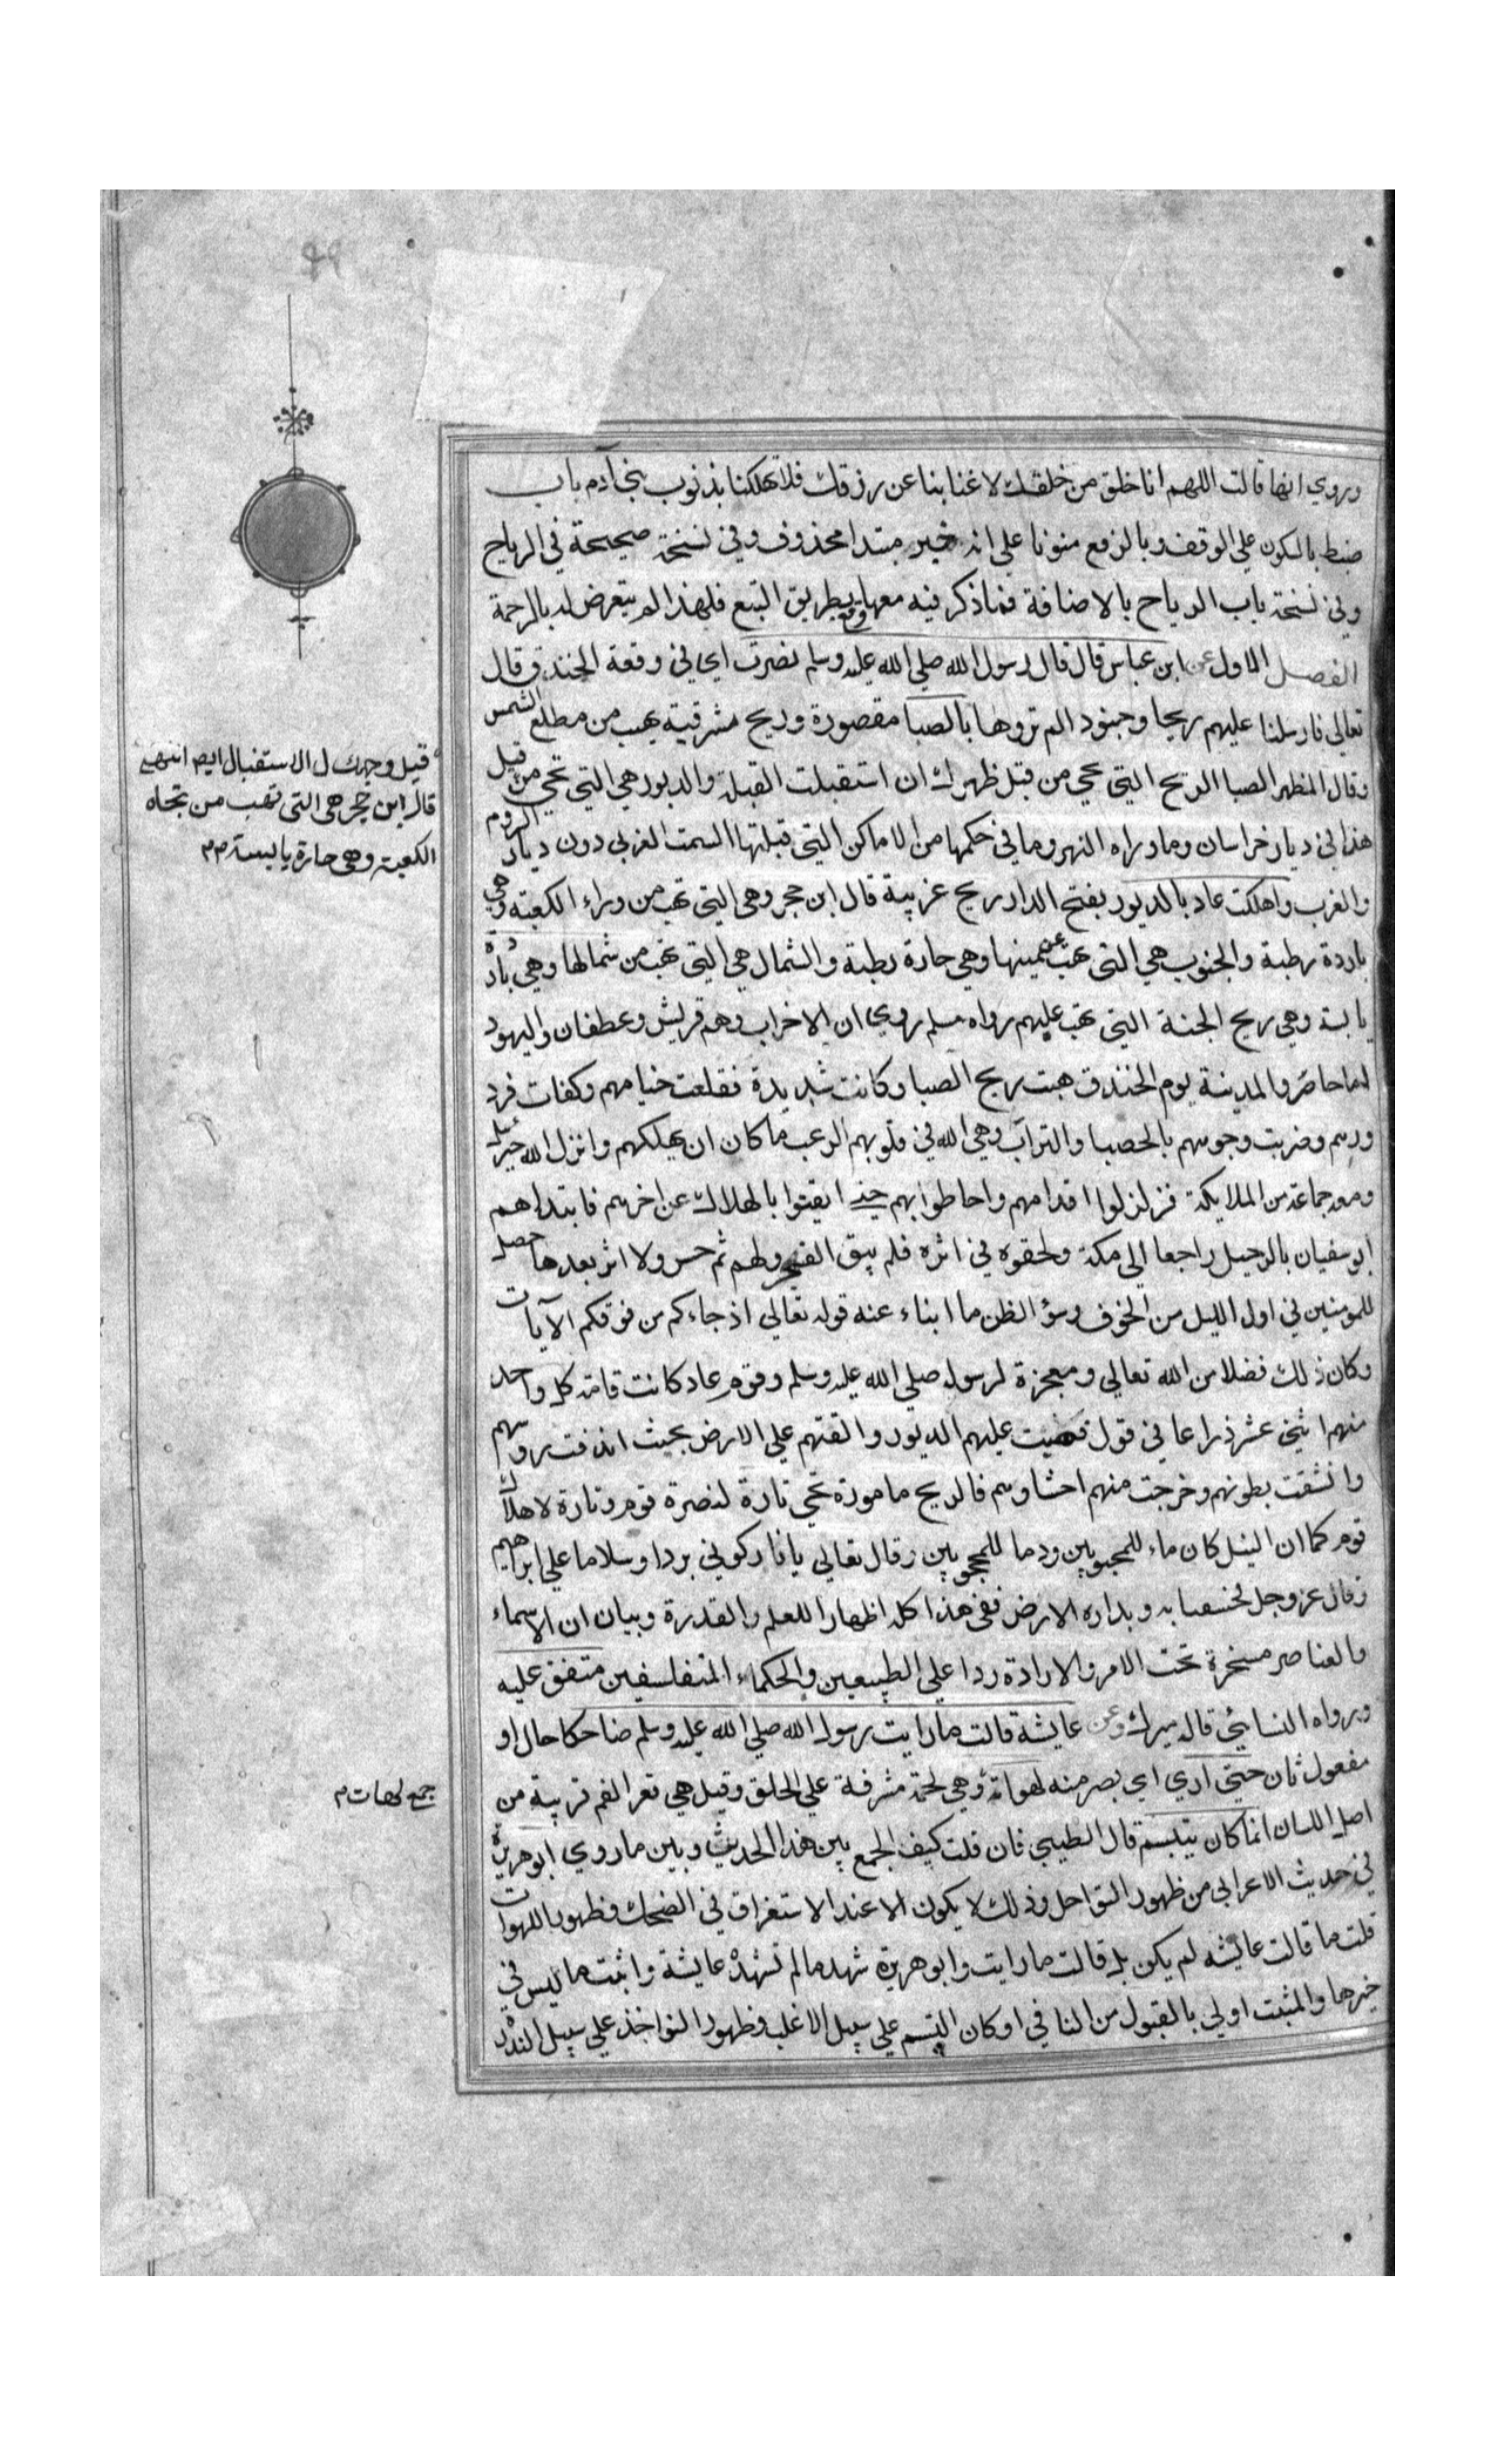 وروي انها قالت اللهم انا خلق من خلقك لا غنا بنا عن رزقك فلا تهلكنا بذنوب بني آدم باب
ضبط بالسكون على الوقف وبالرفع منونا على انه خبر مبتدا محذوف وفي نسخة صحيحة في الرياح
وفي نسخة باب الرياح بالاضافة فماذكر فيه معها وقع بطريق التبع فلهذا لم يتعرض له بالرحمة
الفصل الاول عن ابن عباس قال قال رسول الله صلي الله عليه وسلم نصرت اي في وقعة الخندق وقال
تعالي فارسلنا عليهم ريحا وجنودا لم تروها بالصبا مقصورة وريح مشرقية تهب من مطلع الشمس
وقال المظهر الصبا الريح التي تجي من قبل ظهرك ان استقبلت القبلة والدبور هي التي تجي من قبل
هذا في ديار خراسان وماوراه النهر وما في حكمها من الاماكن التي قبلتها السمت الغربي دون ديار الروم
والغرب واهلكت عاد بالدبور بفتح الدال ريح غربية قال ابن حجر وهي التي تهب من وراء الكعبة وهي
باردة رطبة والجنوب هي التي تهب عن يمينها وهي حارة رطبة والشمال هي التي تهب من شمالها وهي باردة
يابسة وهي ريح الجنة التي تهب عليهم رواه مسلم روي ان الاحزاب وهم قريش وغطفان واليهود
لما حاصروا المدينة يوم الخندق هبت ريح الصبا وكانت شديدة فقلعت خيامهم وكفات قد
ورهم وضربت وجوههم بالحصبا والتراب وهي الله في قلوبهم الرعب ما كان ان يهلكهم وانزل الله جبرئيل
ومعه جماعة من الملايكة فزلزلوا اقدامهم واحاطوا بهم حتي ايقنوا بالهلاك عن اخرهم فابتداهم
ابو سفيان بالرحيل راجعا الي مكة ولحقوه في اثره فلم يبق الفجر ولهم ثم حس ولا اثر بعدها حصل
للمومنين في اول الليل من الخوف وسؤ الظن ما ابناء عنه قوله تعالي اذ جاءكم من فوقكم الآيات
وكان ذلك فضلا من الله تعالي ومعجزة لرسوله صلي الله عليه وسلم وقوم عاد كانت قامة كل واحد
منهم اثني عشر ذراعا في قول فهبت عليهم الدبور والقتهم علي الارض بحيث اندفت روسهم
وانشقت بطونهم وخرجت منهم احشاوهم فالريح مامورة تجي تارة لنصرة قوم وتارة لاهلاك
قوم كما ان النيل كان ماء للمحبوبين ودما للمحجوبين وقال تعالي يا نار كوني بردا وسلاما علي ابراهيم
وقال عز وجل فخسفنا به وبداره الارض ففي هذا كله اظهارا للعلم والقدرة وبيان ان الاسماء
والعناصر مسخرة تحت الامر والارادة ردا علي الطبيعين والحكماء المتفلسفين متفق عليه
ورواه النسائي قاله ميرك وعن عايشة قالت ما رايت رسول الله صلي الله عليه وسلم ضاحكا حال او
مفعول ثان حتي اري اي بصر منه لهواته وهي لحمة مشرفة علي الحلق وقيل هي قعر الفم قريبة من
اصل اللسان انما كان يتبسم قال الطيبي فان قلت كيف الجمع بين هذا الحديث وبين ما روي ابو هريرة
في حديث الاعرابي من ظهور النواجد وذلك لا يكون الا عند الاستغراق في الضحك وظهور اللهوات
قلت ما قالت عايشه لم يكن بل قالت ما رايت وابو هريرة شهد ما لم تشهد عايشة واثبت ما ليس في
خبرها والمثبت اولي بالقبول من النافي او كان التبسم علي سبيل الاغلب وظهور النواجذ علي سبيل الندر
قبل وجهك ل الاستقبال ايم انتهي
قال ابن حجر هي التي تهب من تجاه
الكعبة وهي حارة يابسة م م
جمع لهات م